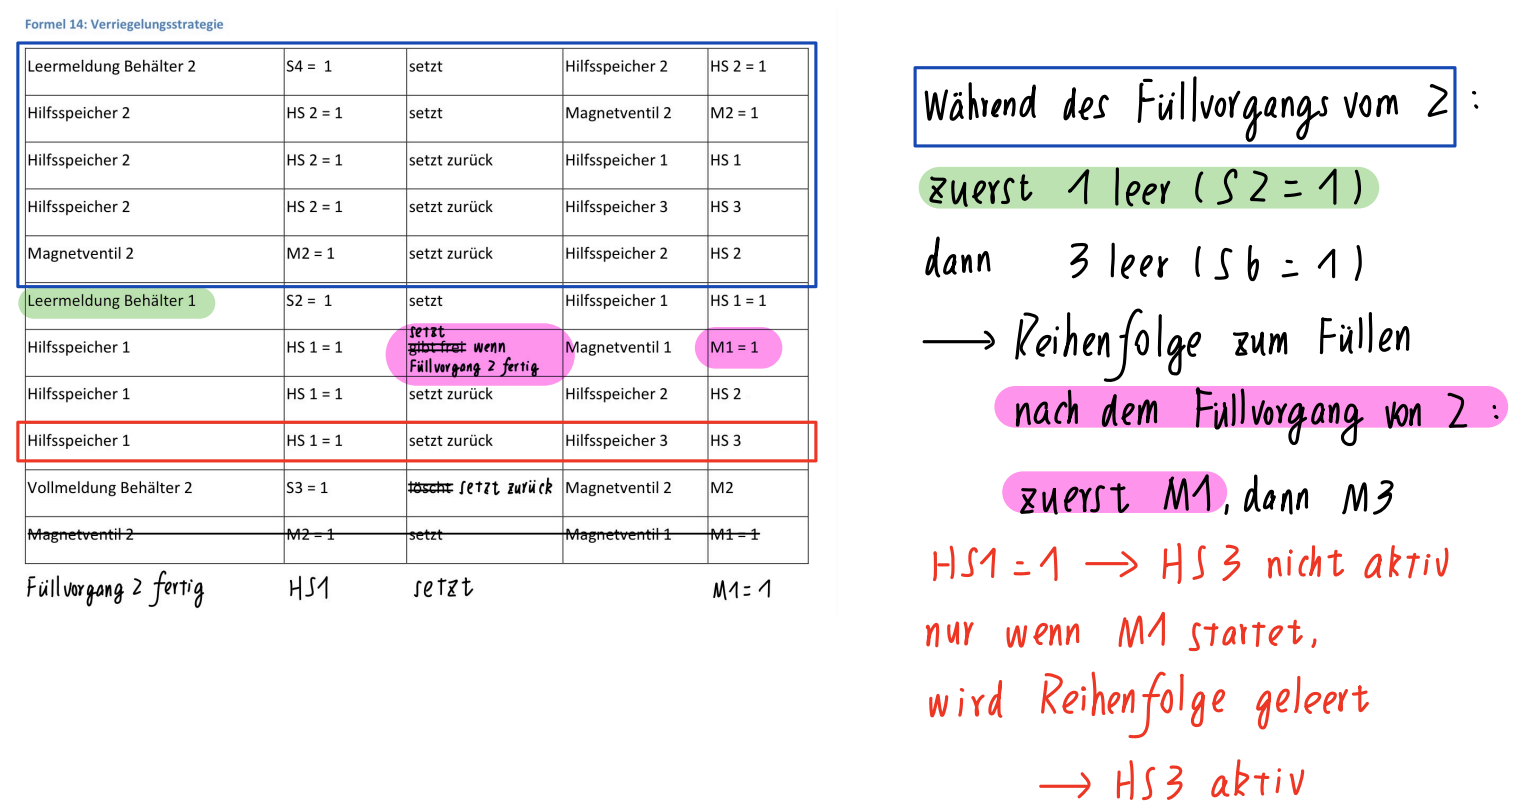 Formel 14: Verriegelungsstrategie
Leermeldung Behälter 2 S4 = 1 setzt Hilfsspeicher 2 HS 2 = 1
Hilfsspeicher 2 HS 2 = 1 setzt Magnetventil 2 M2 = 1
Hilfsspeicher 2 HS 2 = 1 setzt zurück Hilfsspeicher 1 HS 1
Hilfsspeicher 2 HS 2 = 1 setzt zurück Hilfsspeicher 3 HS 3
Magnetventil 2 M2 = 1 setzt zurück Hilfsspeicher 2 HS 2
Leermeldung Behälter 1 S2 = 1 setzt Hilfsspeicher 1 HS 1 = 1
setzt
Hilfsspeicher 1 HS 1 = 1 gibt frei wenn Magnetventil 1 M1 = 1
Füllvorgang 2 fertig
Hilfsspeicher 1 HS 1 = 1 setzt zurück Hilfsspeicher 2 HS 2
Hilfsspeicher 1 HS 1 = 1 setzt zurück Hilfsspeicher 3 HS 3
Vollmeldung Behälter 2 S3 = 1 löscht setzt zurück Magnetventil 2 M2
Magnetventil 2 M2 = 1 setzt Magnetventil 1 M1 = 1
Füllvorgang 2 fertig HS1 setzt M1 = 1
Während des Füllvorgangs vom 2 :
zuerst 1 leer (S2 = 1)
dann 3 leer (S6 = 1)
→ Reihenfolge zum Füllen
nach dem Füllvorgang von 2 :
zuerst M1, dann M3
HS1 = 1 → HS3 nicht aktiv
nur wenn M1 startet,
wird Reihenfolge geleert
→ HS3 aktiv